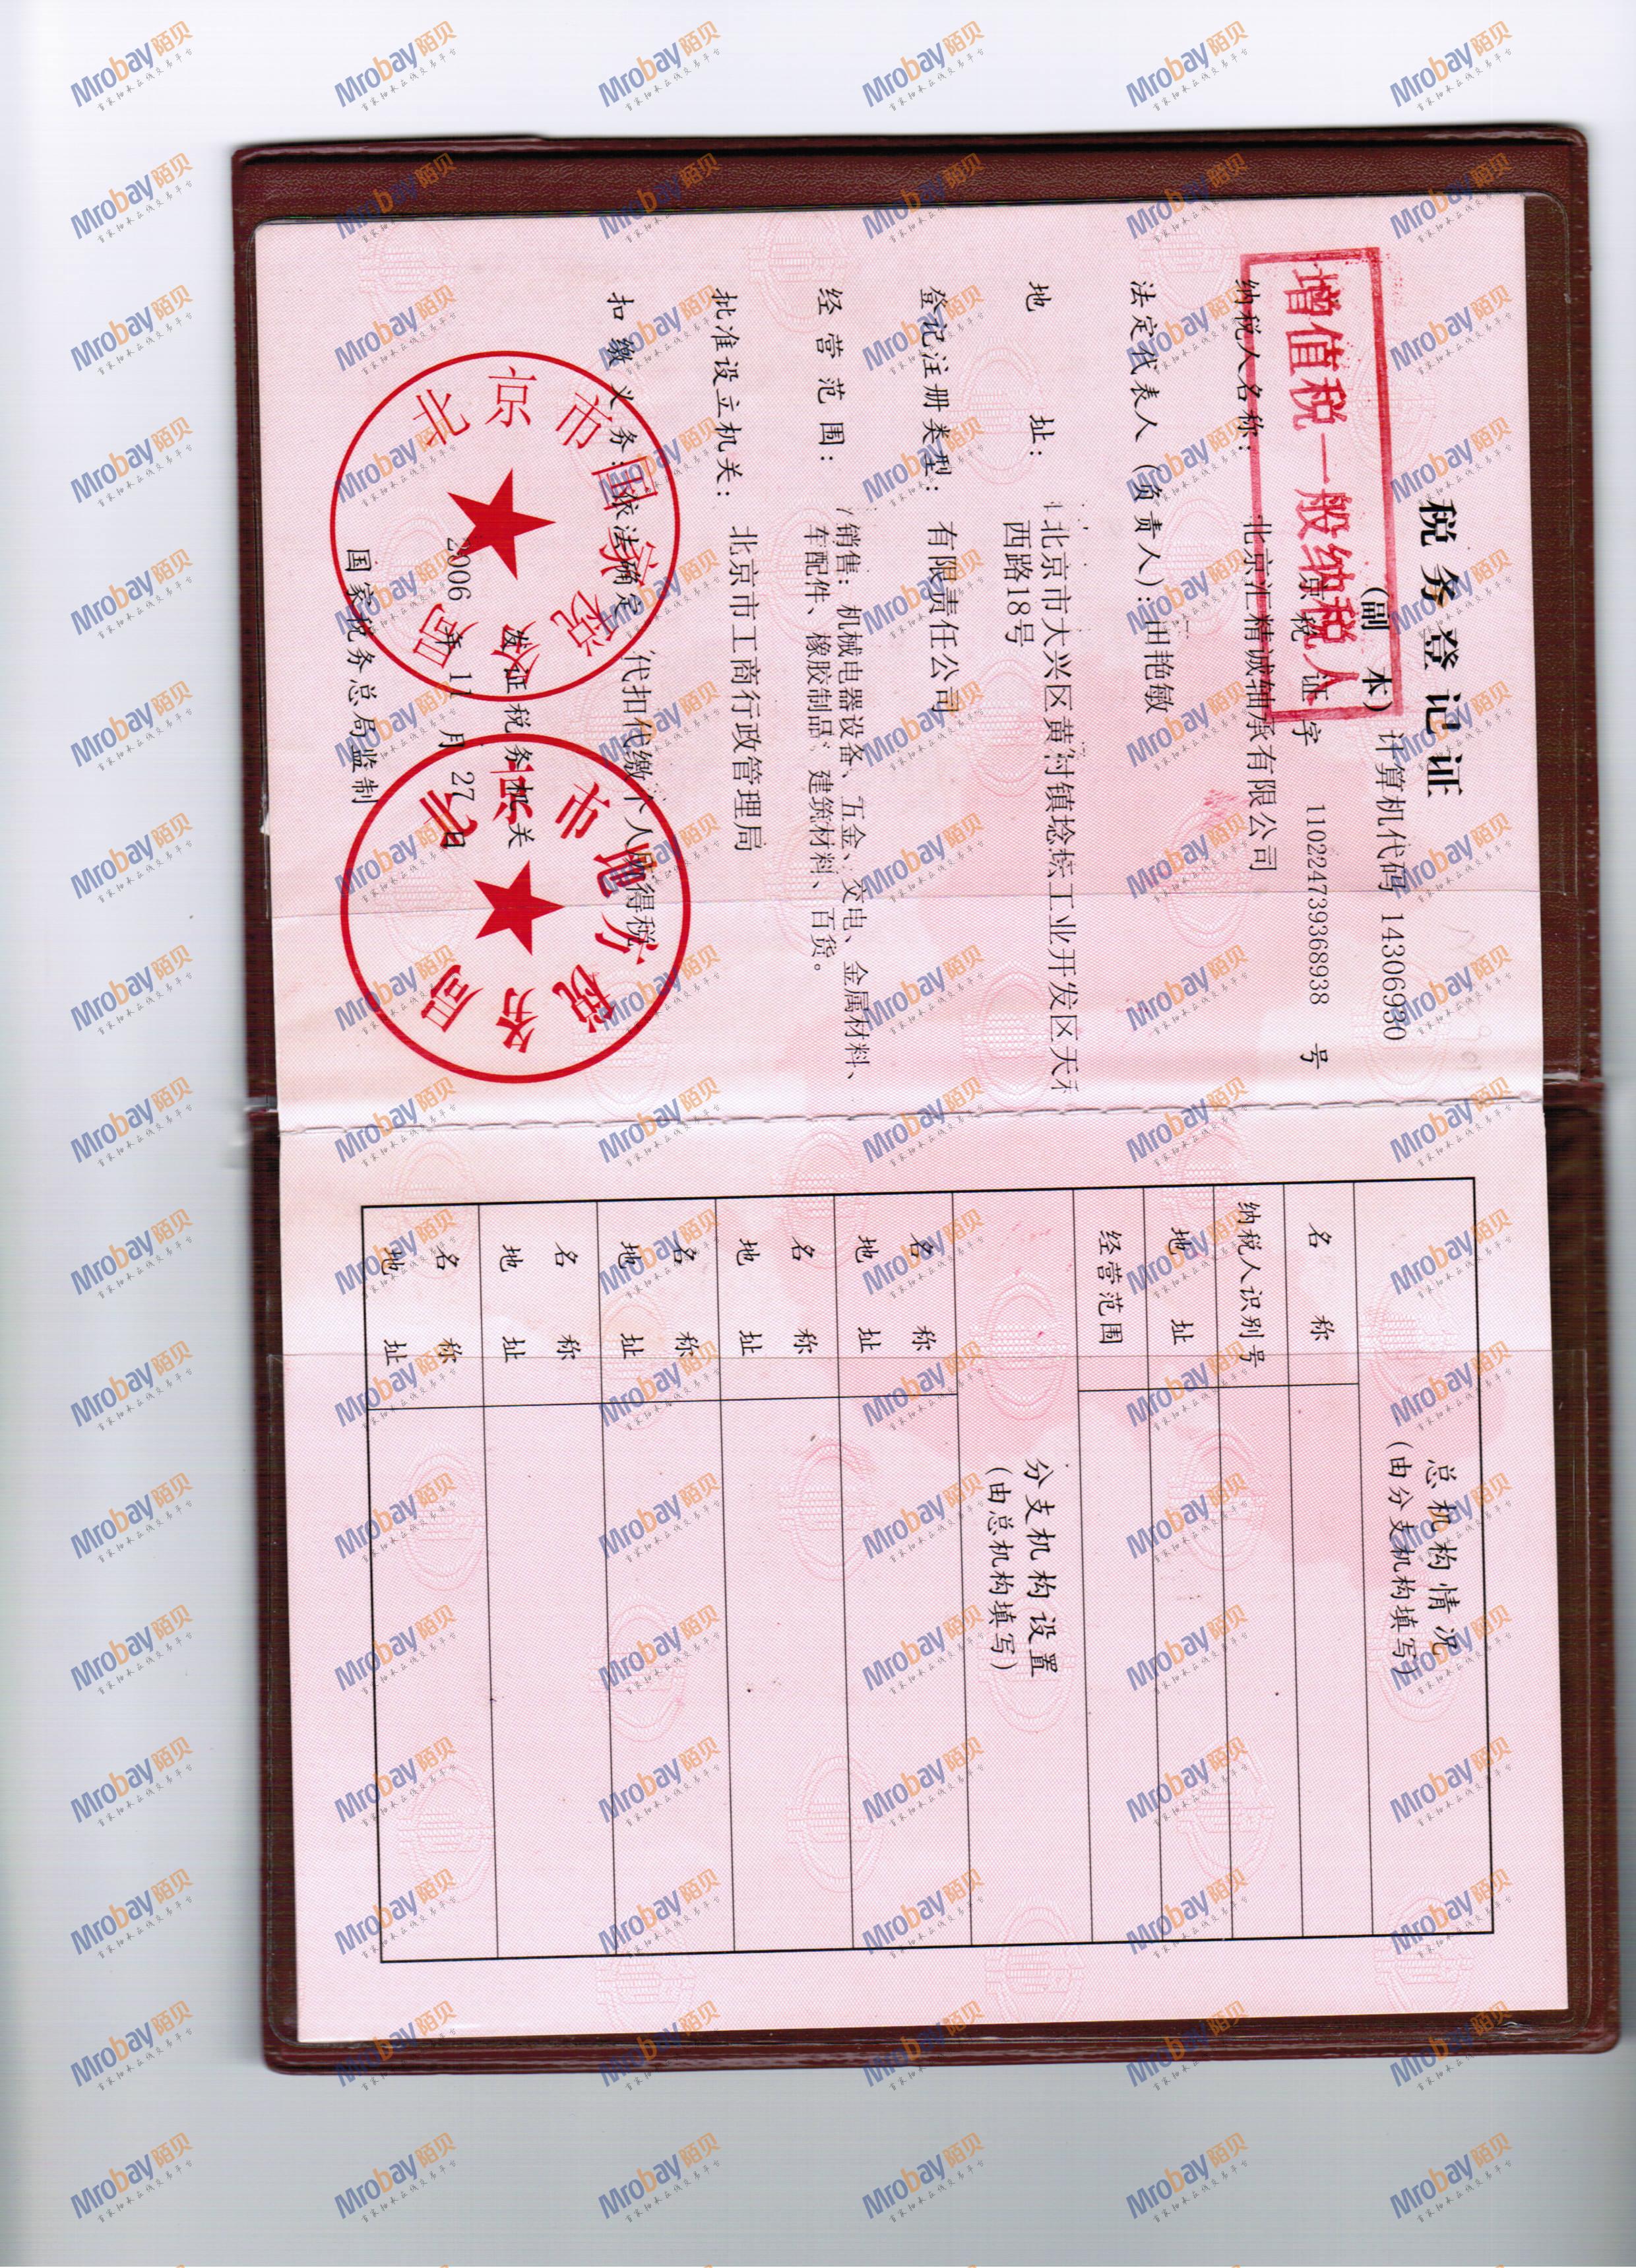 税务登记证
(副 本)
计算机代码 14306930
增值税一般纳税人
京 税 证 字 110224739368938 号
纳税人名称: 北京汇精诚轴承有限公司
法定代表人(负责人): 田艳敏
地 址: 北京市大兴区黄村镇埝坛工业开发区天
西路18号
登记注册类型: 有限责任公司
经营范围: 销售: 机械电器设备、五金、交电、金属材料、
车配件、橡胶制品、建筑材料、百货。
批准设立机关: 北京市工商行政管理局
扣缴义务: 依法确定 代扣代缴个人所得税
发证税务机关
2006 年 11 月 27 日
国家税务总局监制
北京市国家税务局
北京市地方税务局
总机构情况
(由分支机构填写)
名 称
纳税人识别号
地 址
经营范围
分支机构设置
(由总机构填写)
名 称
地 址
名 称
地 址
名 称
地 址
名 称
地 址
名 称
地 址
Mrobay陌贝